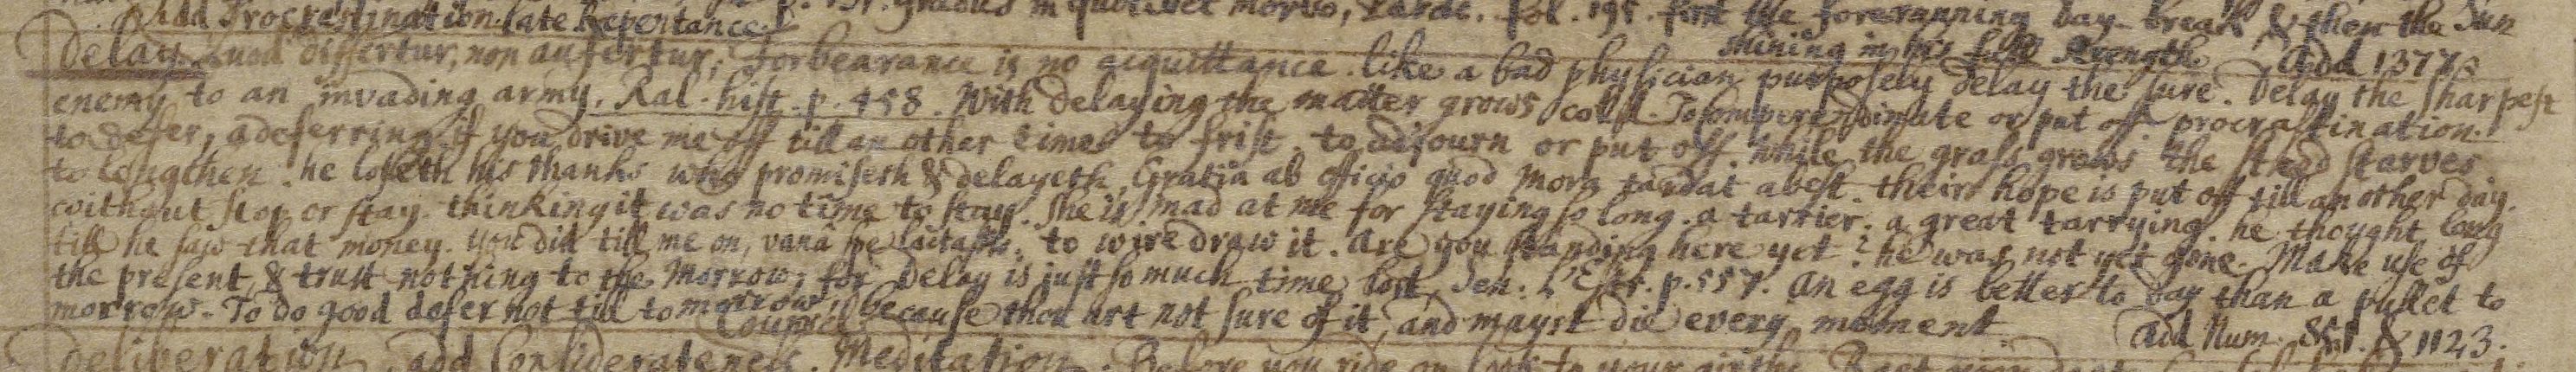 Add Procrastination. late Repentance. p. 131. gradus in quolibet morbo, Tarde. fol. 195. first the forerunning day-break & then the Sun
shining in his full strength. Add 1377.
Delay. Quod differtur, non aufertur, Forbearance is no acquittance. like a bad physician purposely delay the cure. Delay the sharpest
enemy to an invading army. Ral. hist. p. 458. With delaying the matter grows cold. To comperendinate or put off. procrastination.
to defer, a deferring. if you drive me off till an other time. to frist. to adjourn or put off. while the grass grows the steed starves
to lengthen. he loseth his thanks who promiseth & delayeth, Gratia ab officio quod mora tardat abest. their hope is put off till another day.
without stop or stay. thinking it was no time to stay. She is mad at me for staying so long. a tarrier. a great tarrying. he thought long
till he saw that money. you did till me on, vanâ spe lactasti. to wiredraw it. Are you standing here yet? he was not yet gone. Make use of
the present, & trust nothing to the Morrow, for Delay is just so much time lost, Sen. L'Estr. p. 557. An egg is better to day than a pullet to
morrow. To do good defer not till to morrow, because thou art not sure of it, and mayst die every moment. Add Num. 851. & 1123.
Counsel
Deliberation, add Considerateness. Meditation. Before you ride on look to your girths.